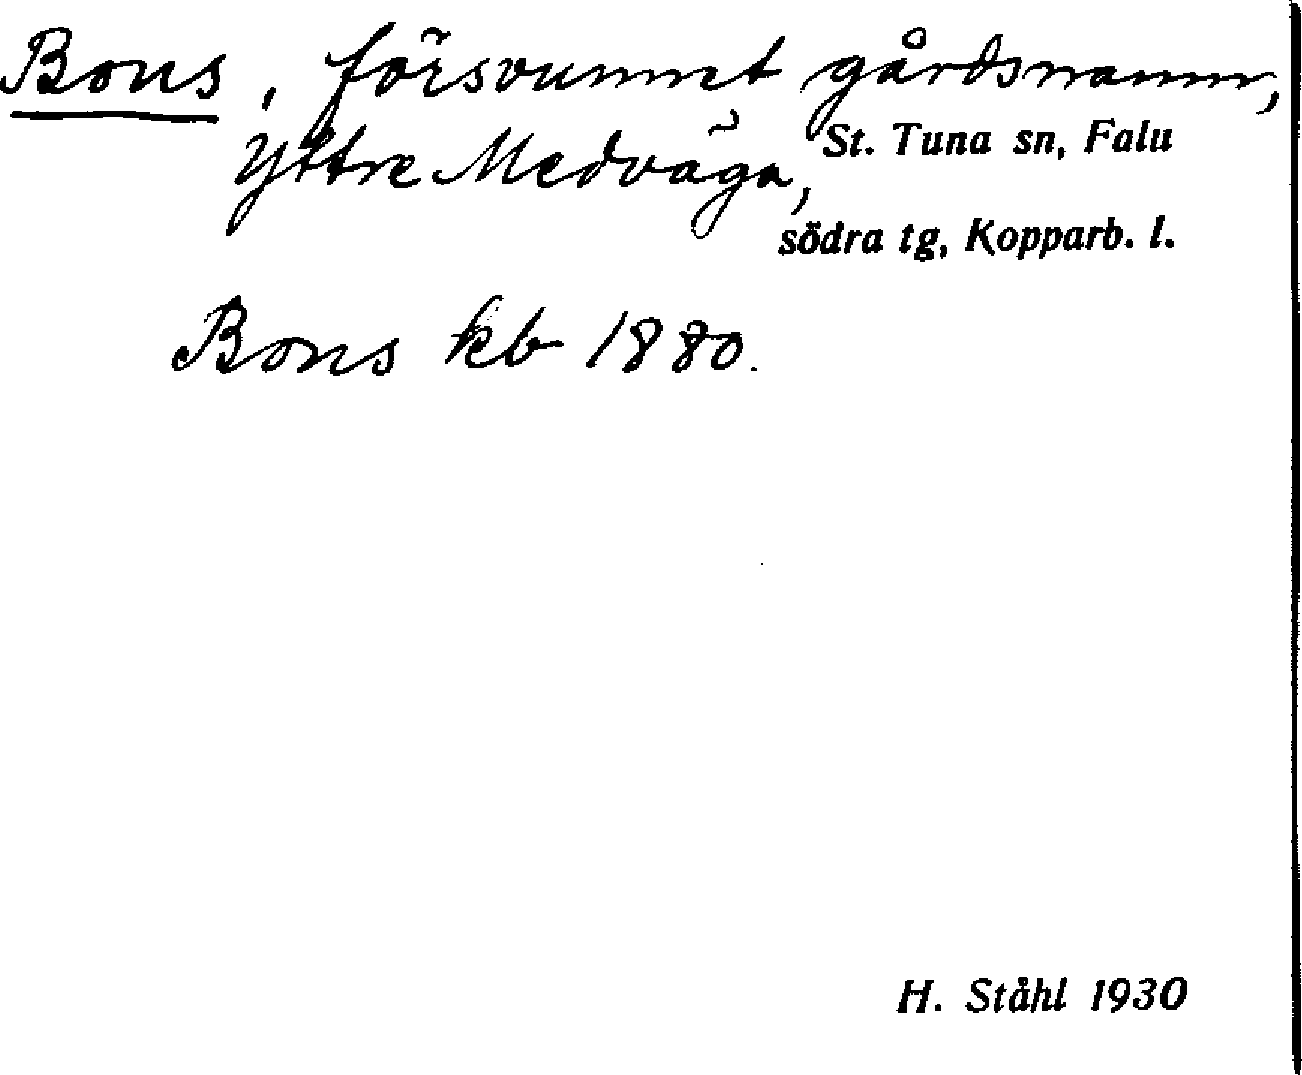 Bons, försvunnet gårdsnamn,
Yttre Medväga, St. Tuna sn, Falu
södra tg, Kopparb. l.
Bons kb 1880.
H. Ståhl 1930